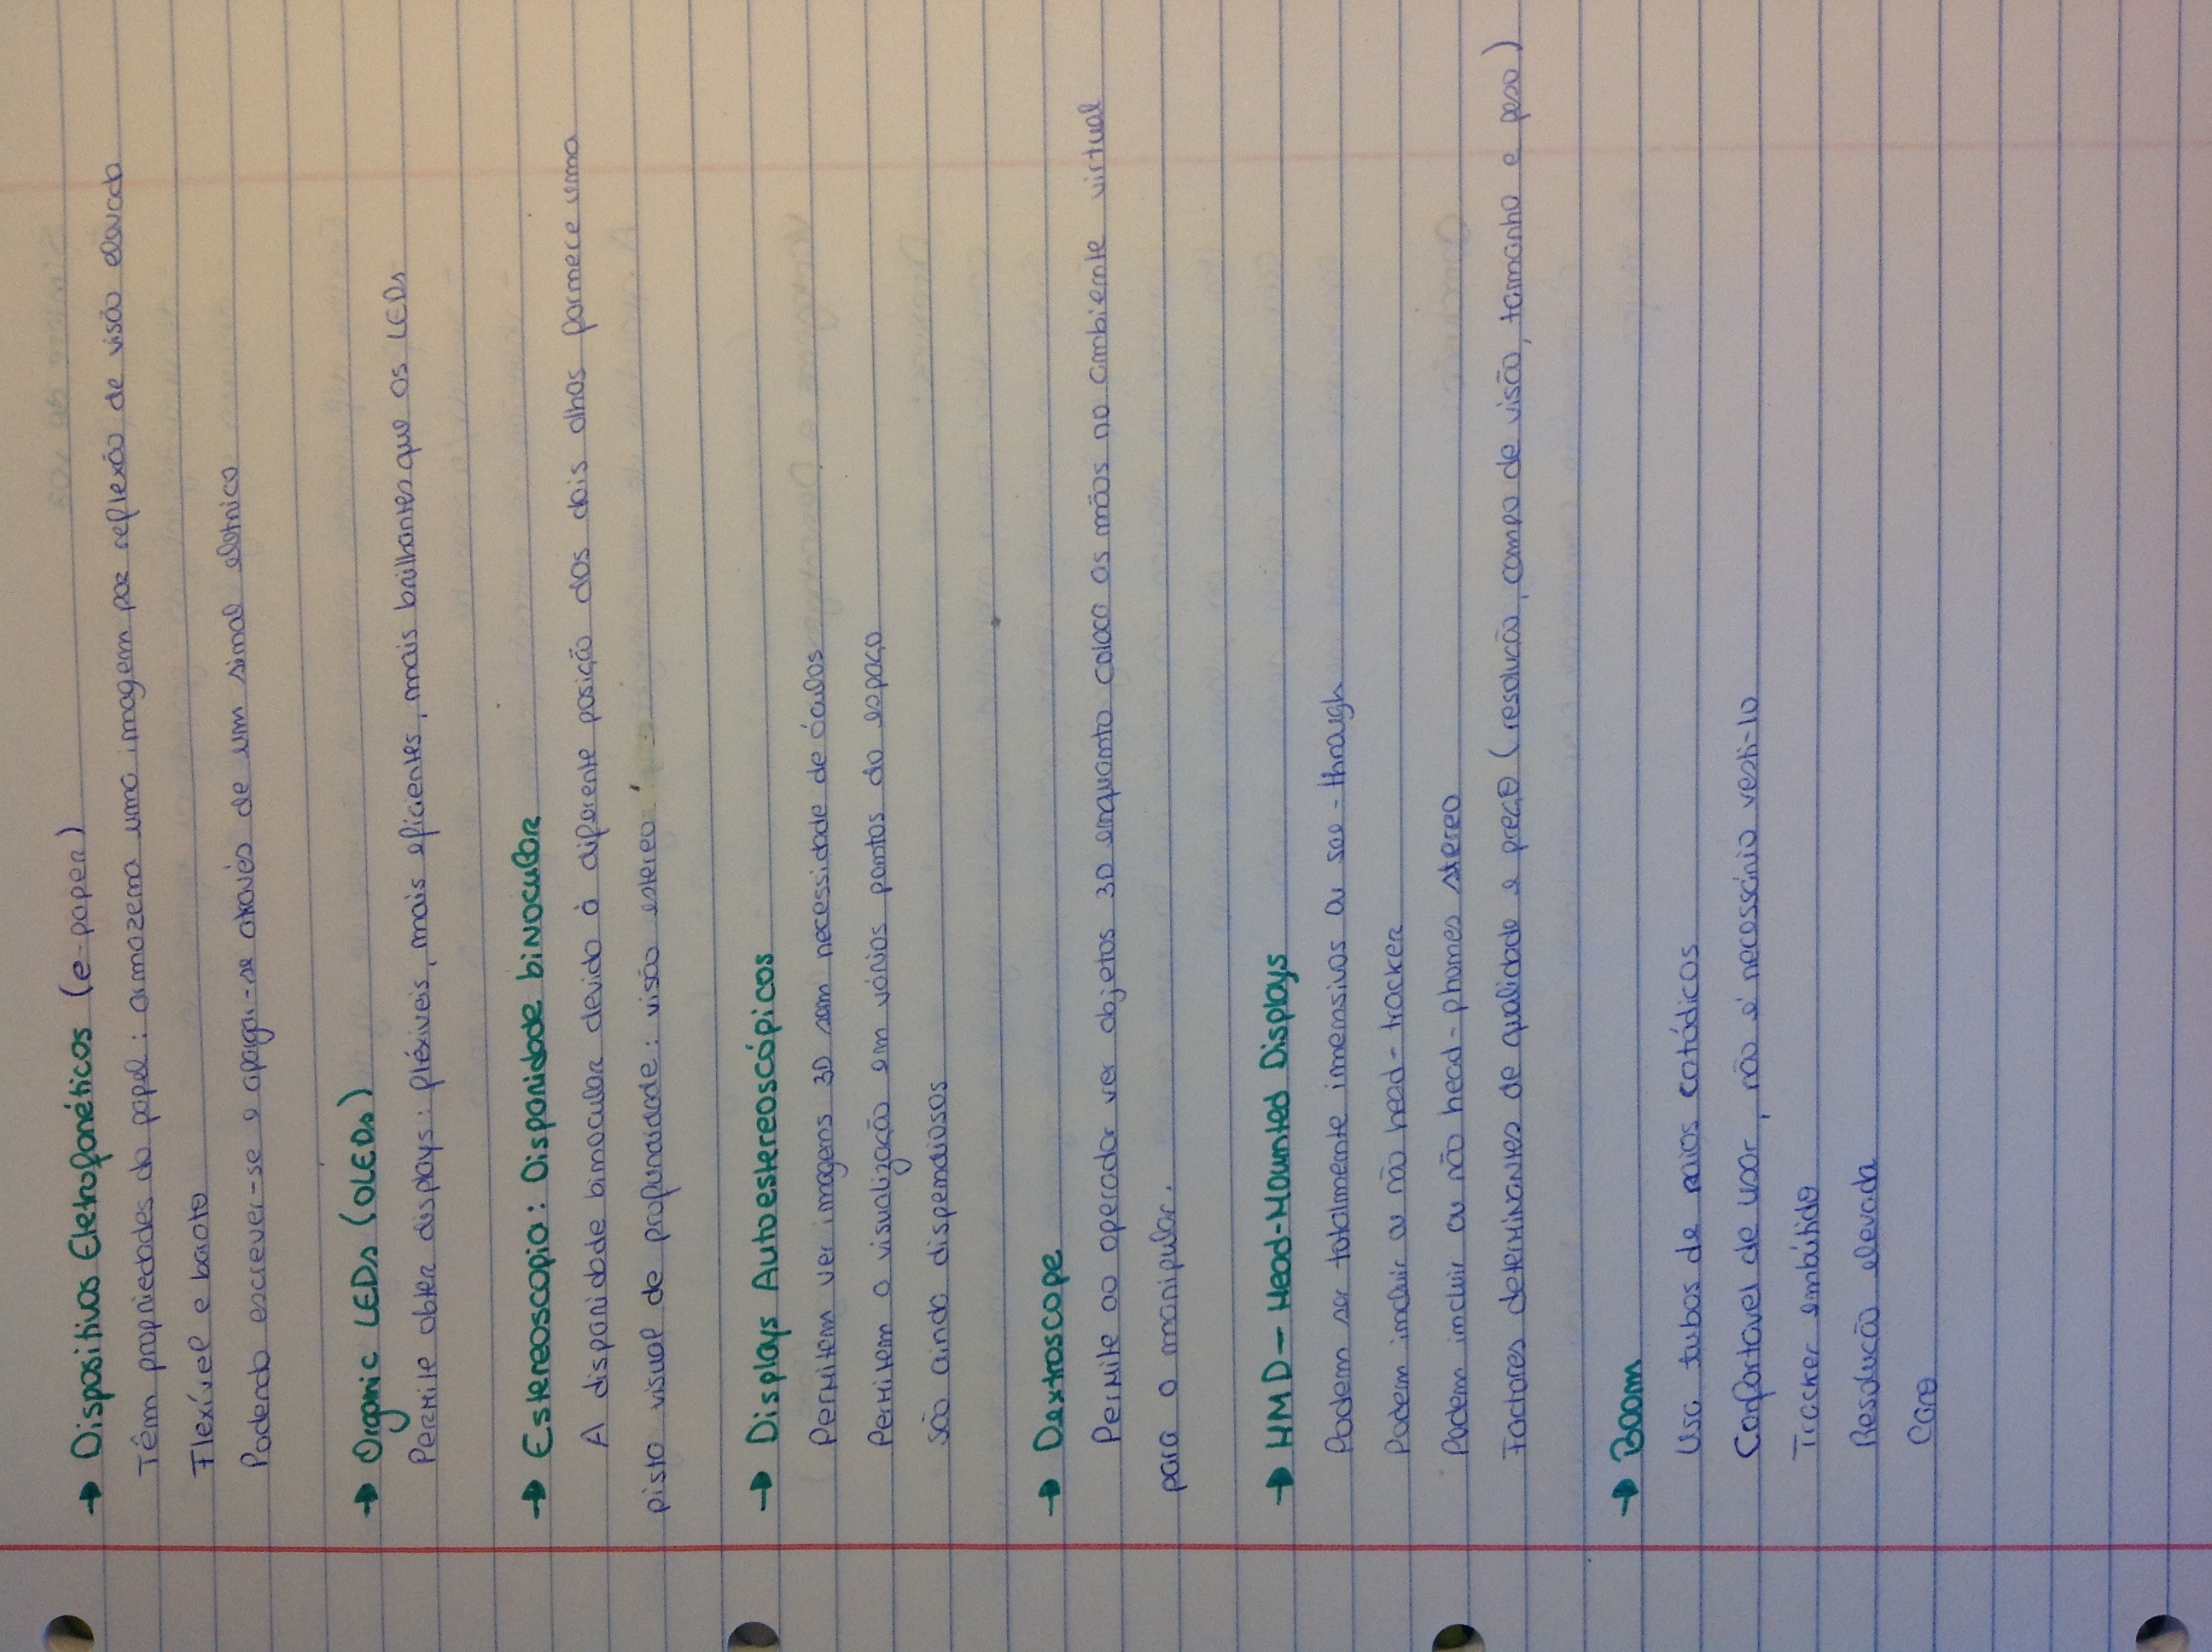 → Dispositivos Eletrofonéticos (e-paper)
Têm propriedades do papel: armazena uma imagem por reflexão de visão elevada
Flexível e barato
Podendo escrever-se e apagar-se através de um sinal eletrico
→ Organic LEDs (OLEDs)
Permite obter displays: fléxiveis, mais eficientes, mais brilhantes que os LEDs
→ Estereoscopia: Disparidade binocular
A disparidade binocular devido à diferente posição dos dois olhos fornece uma
pista visual de profundidade: visão estereo
→ Displays Autoestereoscópicos
Permitem ver imagens 3D sem necessidade de óculos
Permitem a visualização em vários pontos do espaço
são ainda dispendiosos
→ Dextroscope
Permite ao operador ver objetos 3D enquanto coloca as mãos no ambiente virtual
para o manipular.
→ HMD - Head-Mounted Displays
Podem ser totalmente imersivos ou see-through
Podem incluir ou não head-tracker
Podem incluir ou não head-phones stereo
Factores determinantes de qualidade e preço (resolução, campo de visão, tamanho e peso)
→ Boom
Usa tubos de raios catódicos
Confortavel de usar, não é necessário vesti-lo
Tracker embútido
Resolução elevada
Caro